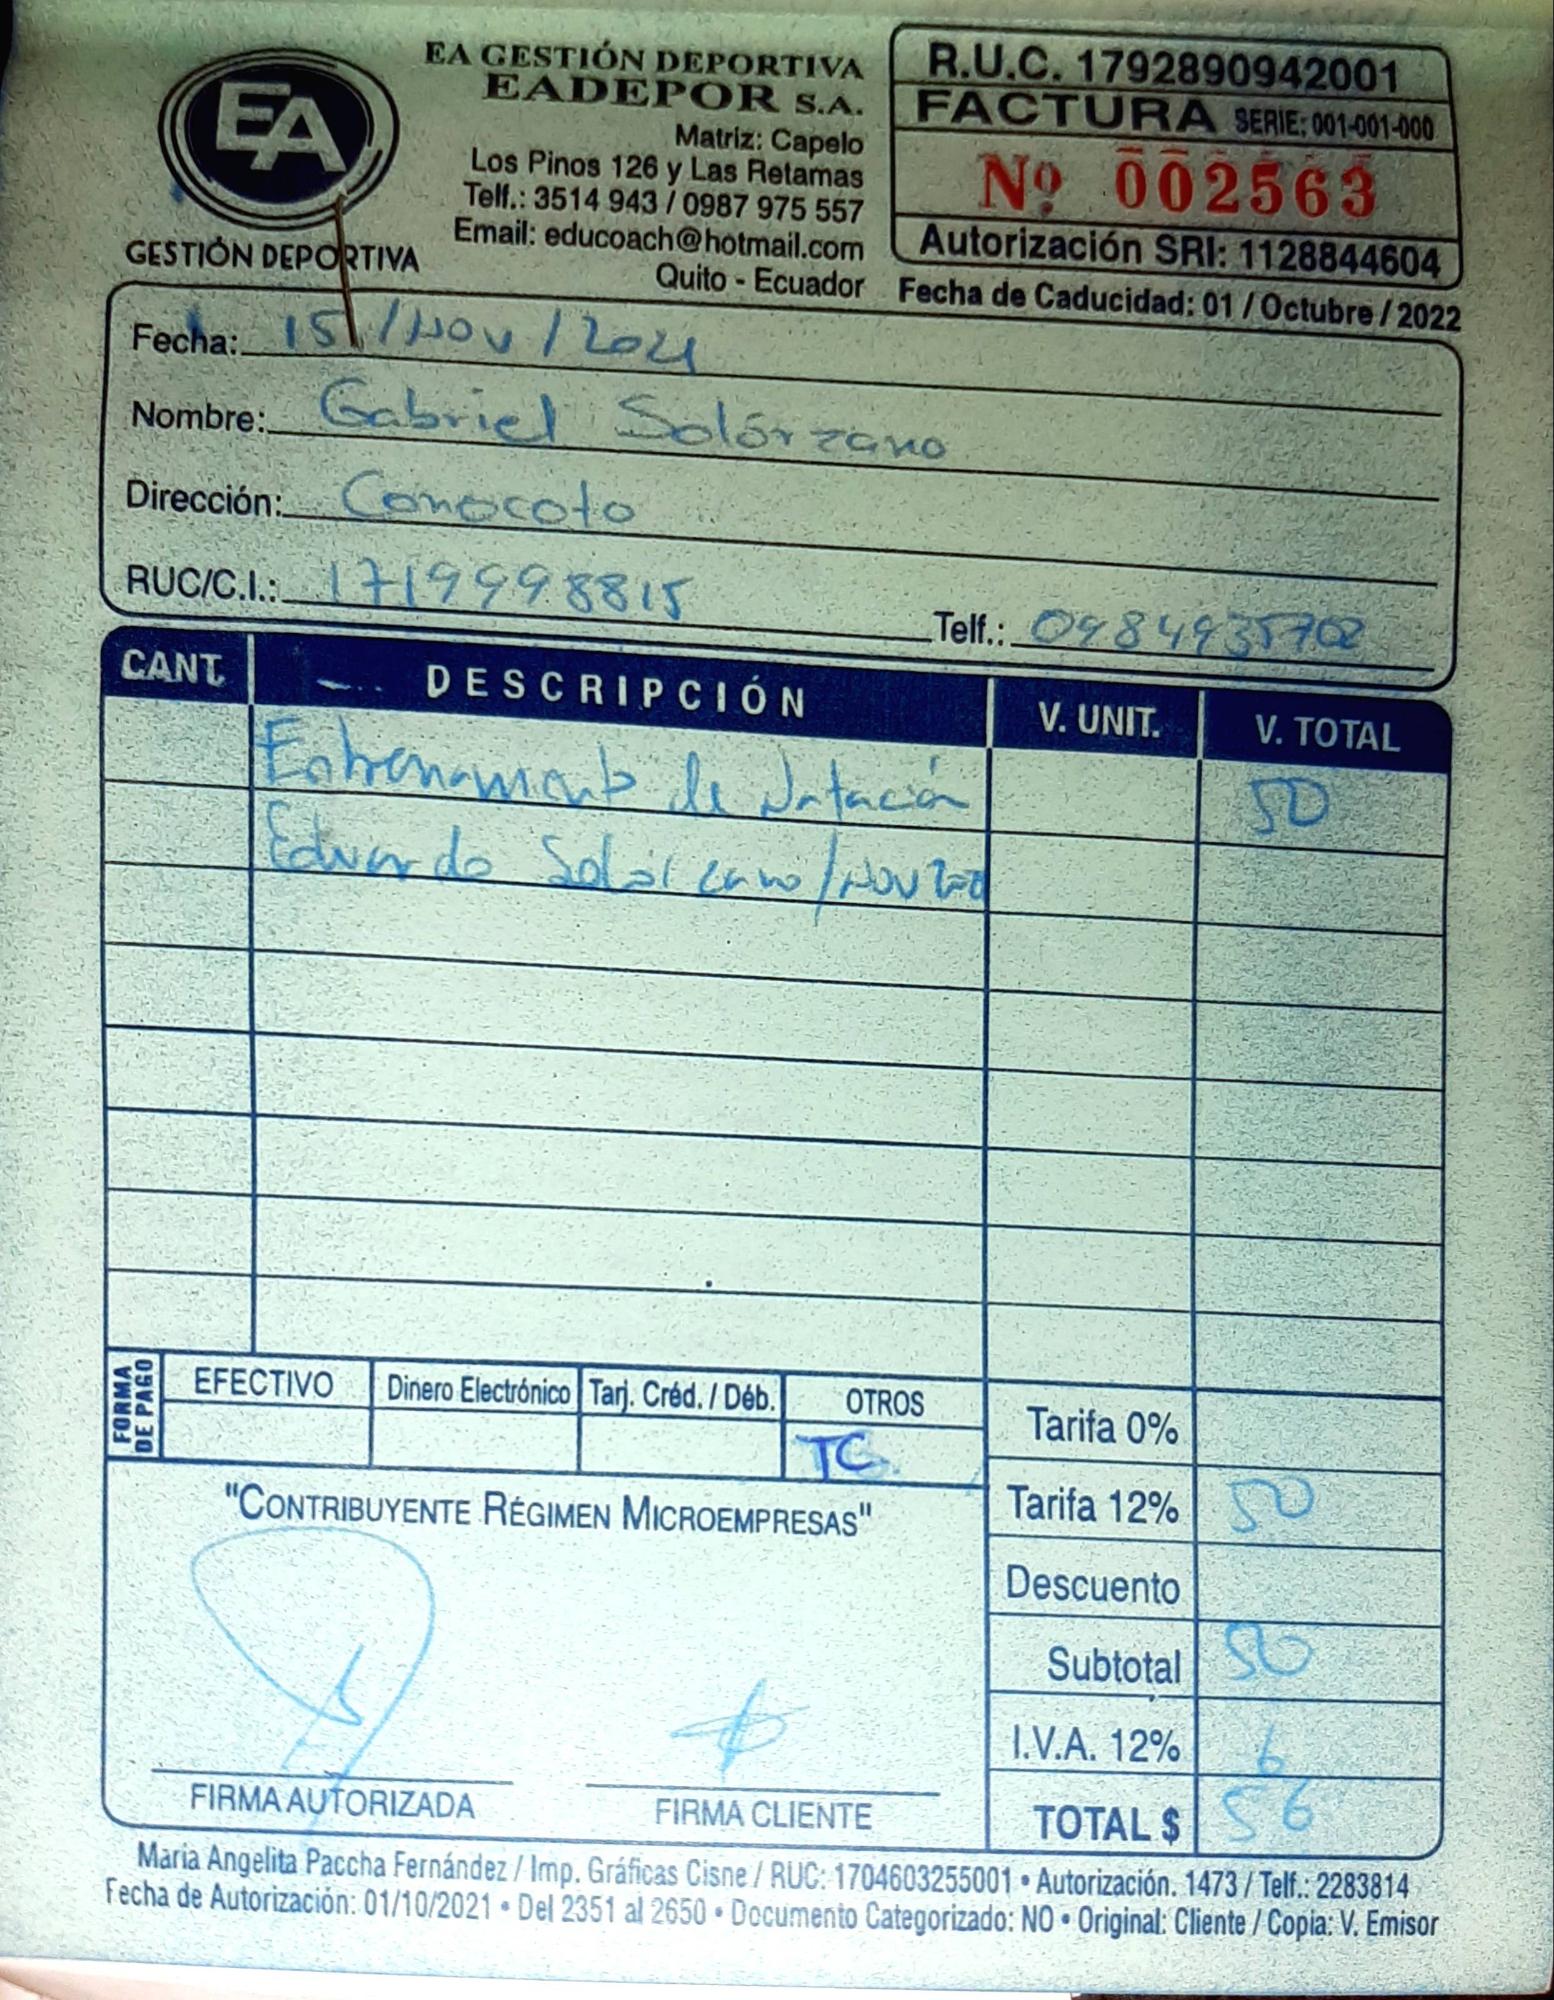 EA
GESTIÓN DEPORTIVA
EA GESTIÓN DEPORTIVA
EADEPOR S.A.
Matriz: Capelo
Los Pinos 126 y Las Retamas
Telf.: 3514 943 / 0987 975 557
Email: educoach@hotmail.com
Quito - Ecuador
R.U.C. 1792890942001
FACTURA SERIE: 001-001-000
Nº 002563
Autorización SRI: 1128844604
Fecha de Caducidad: 01 / Octubre / 2022
Fecha: 15/Nov/2021
Nombre: Gabriel Solórzano
Dirección: Conocoto
RUC/C.I.: 1719998815 Telf.: 0984935702
CANT. DESCRIPCIÓN V. UNIT. V. TOTAL
Entrenamiento de Natación 50
Eduardo Solórzano/Nov
FORMA DE PAGO
EFECTIVO Dinero Electrónico Tarj. Créd. / Déb. OTROS
TC
Tarifa 0%
Tarifa 12% 50
Descuento
Subtotal 50
I.V.A. 12% 6
TOTAL $ 56
"CONTRIBUYENTE RÉGIMEN MICROEMPRESAS"
FIRMA AUTORIZADA FIRMA CLIENTE
Maria Angelita Paccha Fernández / Imp. Gráficas Cisne / RUC: 1704603255001 • Autorización. 1473 / Telf.: 2283814
Fecha de Autorización: 01/10/2021 • Del 2351 al 2650 • Documento Categorizado: NO • Original: Cliente / Copia: V. Emisor